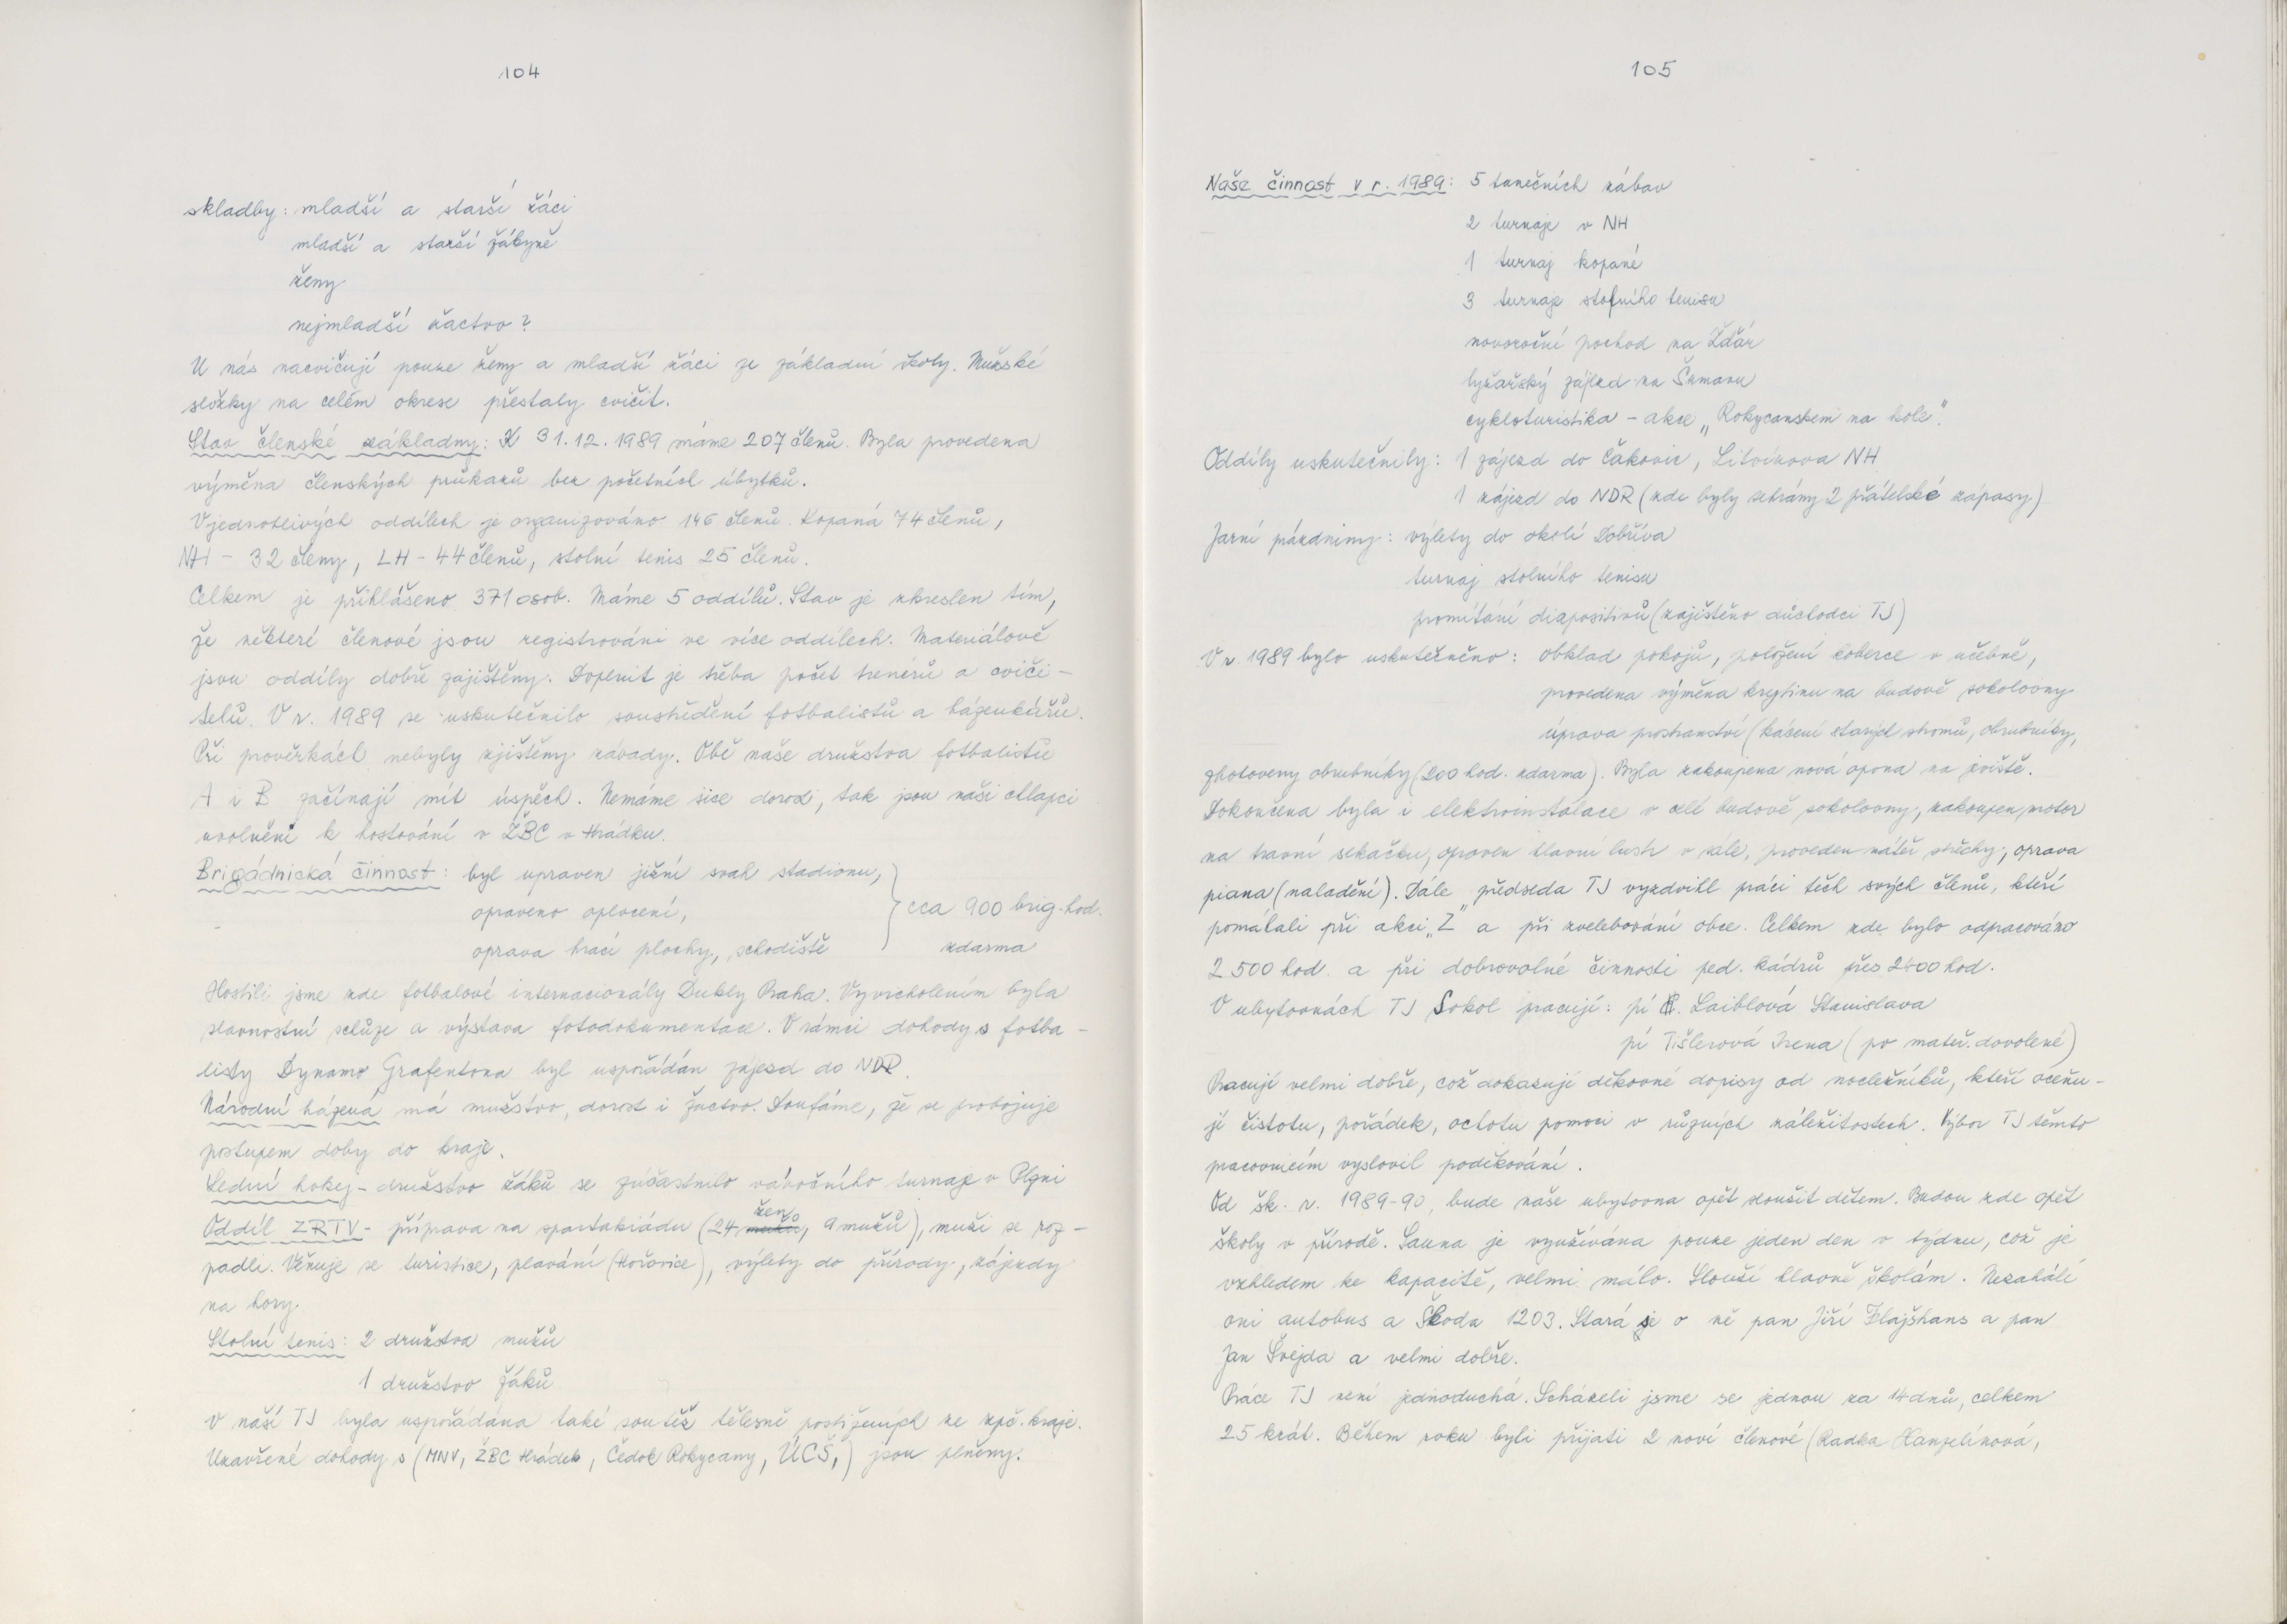 104
skladby: mladší a starší žáci
mladší a starší žákyně
ženy
nejmladší žactvo?
U nás nacvičují pouze ženy a mladší žáci ze základní školy. Mužské
složky na celém okrese přestaly cvičit.
Stav členské základny: K 31.12.1989 máme 207 členů. Byla provedena
výměna členských průkazů bez početních úbytků.
V jednotlivých oddílech je organizováno 146 členů. Kopaná 74 členů,
NH - 32 členy, LH - 44 členů, stolní tenis 25 členů.
Celkem je přihlášeno 371 osob. Máme 5 oddílů. Stav je zkreslen tím,
že některé členové jsou registrováni ve více oddílech. Materiálově
jsou oddíly dobře zajištěny. Doplnit je třeba počet trenérů a cviči-
telů. V r. 1989 se uskutečnilo soustředění fotbalistů a házenkářů.
Při prověrkách nebyly zjištěny závady. Obě naše družstva fotbalistů
A i B začínají mít úspěch. Nemáme sice dorost, tak jsou naši chlapci
uvolněni k hostování v ŽBC v Hrádku.
Brigádnická činnost: byl upraven jižní svah stadionu,
opraveno oplocení,
cca 900 brig. hod.
oprava hrací plochy, schodiště
zdarma
Hostili jsme zde fotbalové internacionály Dukly Praha. Vyvrcholením byla
slavnostní schůze a výstava fotodokumentace. V rámci dohody s fotba-
listy Dynamo Grafentona byl uspořádán zájezd do NDR.
Národní házená má mužstvo, dorost i žactvo. Doufáme, že se probojuje
postupem doby do kraje.
Lední hokej - družstvo žáků se zúčastnilo vánočního turnaje v Plzni
Oddíl ZRTV - příprava na spartakiádu (24 žen, 9 mužů), muži se roz-
padli. Věnuje se turistice, plavání (Hořovice), výlety do přírody, zájezdy
na hory.
Stolní tenis: 2 družstva mužů
1 družstvo žáků
V naší TJ byla uspořádána také soutěž tělesně postižených ze zpč. kraje.
Uzavřené dohody s (MNV, ŽBC Hrádek, Čedok Rokycany, ÚCŠ,) jsou plněny.
105
Naše činnost v r. 1989: 5 tanečních zábav
2 turnaje v NH
1 turnaj kopané
3 turnaje stolního tenisu
novoroční pochod na Žďár
lyžařský zájezd na Šumavu
cykloturistika - akce „Rokycanskem na kole“.
Oddíly uskutečnily: 1 zájezd do Čakovic, Litvínova NH
1 zájezd do NDR (kde byly sehrány 2 přátelské zápasy)
Jarní prázdniny: výlety do okolí Dobříva
turnaj stolního tenisu
promítání diapositivů (zajištěno důchodci TJ)
V r. 1989 bylo uskutečněno: obklad pokojů, položení koberce v učebně,
provedena výměna krytinu na budově sokolovny
úprava prostranství (kácení starých stromů, obrubníky,
zhotoveny obrubníky (200 hod. zdarma). Byla zakoupena nová opona na jeviště.
Dokončena byla i elektroinstalace v celé budově sokolovny, zakoupen motor
na travní sekačku, opraven hlavní lustr v sále, proveden nátěr střechy, oprava
piana (naladění). Dále předseda TJ vyzdvihl práci těch svých členů, kteří
pomáhali při akci „Z“ a při zvelebování obce. Celkem zde bylo odpracováno
2 500 hod. a při dobrovolné činnosti ped. kádrů přes 2400 hod.
V ubytovnách TJ Sokol pracují: pí Laiblová Stanislava
pí Tišlerová Irena (po mateř. dovolené)
Pracují velmi dobře, což dokazují děkovné dopisy od nocležníků, kteří oceňu-
jí čistotu, pořádek, ochotu pomoci v různých záležitostech. Výbor TJ těmto
pracovnicím vyslovil poděkování.
Od šk. r. 1989-90, bude naše ubytovna opět sloužit dětem. Budou zde opět
školy v přírodě. Sauna je využívána pouze jeden den v týdnu, což je
vzhledem ke kapacitě, velmi málo. Slouží hlavně školám. Nezahálí
ani autobus a Škoda 1203. Stará se o ně pan Jiří Hlajšhans a pan
Jan Švejda a velmi dobře.
Práce TJ není jednoduchá. Scházeli jsme se jednou za 14 dnů, celkem
25 krát. Během roku byli přijati 2 noví členové (Radka Hanzelínová,